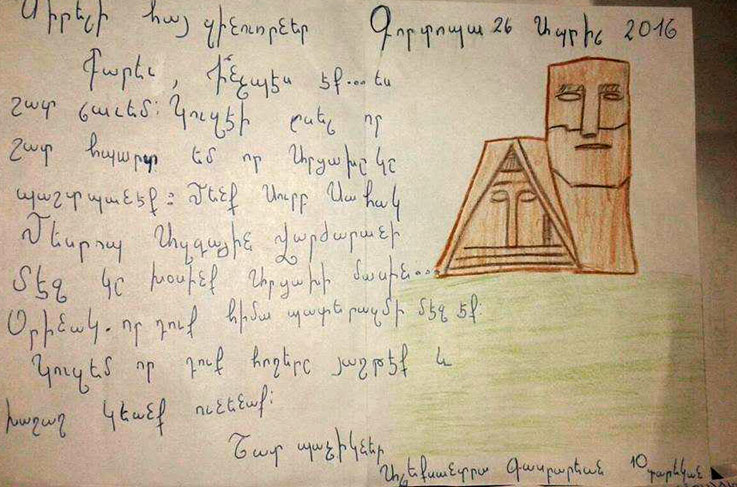 Սիրելի հայ զինուորներ
Գորտոպա 26 Ապրիլ 2016
Բարեւ, ինչպէս էք... ես
շատ լաւեմ: Կուզէի ըսել որ
շատ հպարտ եմ որ Արցախը կը
պաշտպանէք: Մենք Սուրբ Սահակ
Մեսրոպ Ազգային վարժարանի
մէջ կը խօսինք Արցախի մասին...
Օրինակ. որ դուք հիմա պատերազմի մէջ էք:
Կուզեմ որ դուք հողերը յաղթէք և
խաղաղ կեանք ունենաք:
Շատ պաչիկներ
Ալեքսանտրա Գասբարեան 10 տարեկան